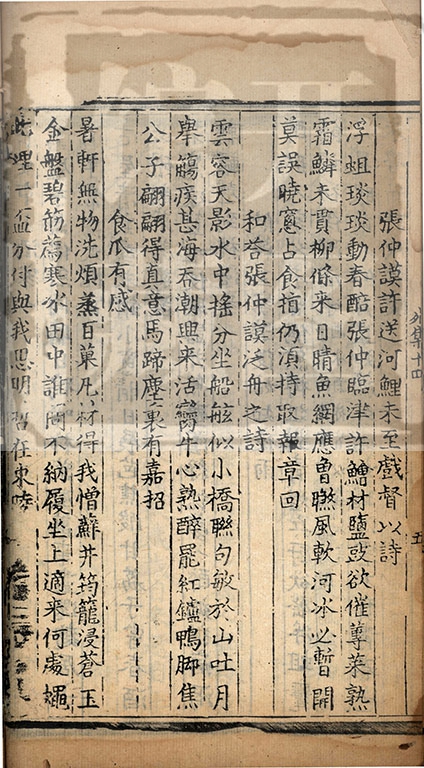 外集十四
五
張仲謨許送河鯉未至戲督以詩
浮蛆琰琰動春醅張仲臨津許鱠材鹽豉欲催蓴菜熟
霜鱗未貫柳條來日晴魚網應曾曬風軟河冰必暫開
莫誤曉窓占食指仍湏持取報章回
和荅張仲謨泛舟之詩
雲容天影水中搖分坐船舷似小橋聯句敏於山吐月
舉觴疾甚海吞潮興來活臠牛心熟醉罷紅鑪鴨脚焦
公子翩翩得真意馬蹄塵裏有嘉招
食瓜有感
暑軒無物洗煩蒸百菓凡材得我憎蘚井筠籠浸蒼玉
金盤碧筯薦寒冰田中誰問不納履坐上適來何處蠅
此理一盃分付與我思明哲在東陵